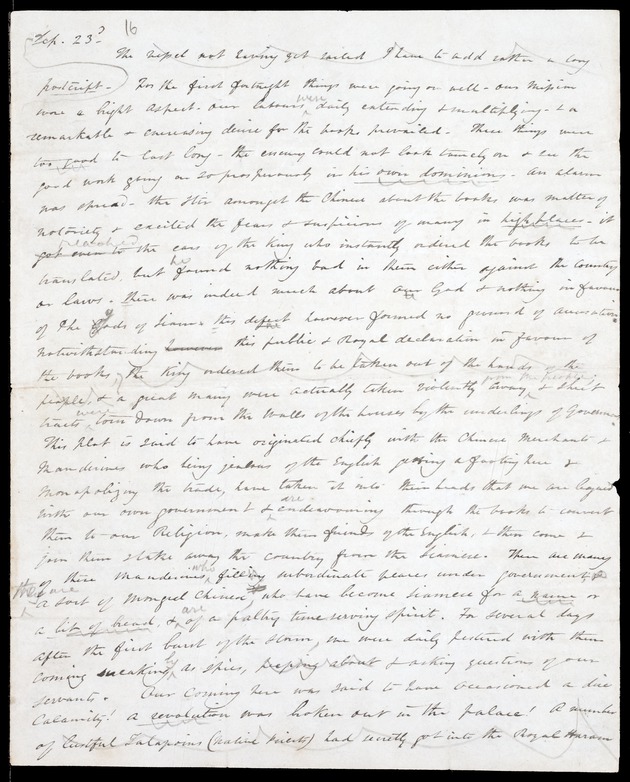 16
Sep. 23d
The vessel not having yet sailed I have to add rather a long
postscript - For the first fortnight things were going on well - our Mission
wore a bright aspect - our labours were daily extending & multiplying - & a
remarkable & increasing desire for the books prevailed - These things were
too good to last long - the enemy could not look tamely on & see the
good work going on so prosperously in his own dominions - An alarm
was spread - the stir amongst the Chinese about the books was matter of
notoriety & excited the fears & suspicions of many in high places - it
got even to reached the ears of the King who instantly ordered the books to be
translated, but he found nothing bad in them either against the country
or laws - there was indeed much about our God & nothing in favour
of the Gods of Siam & this defect however formed no ground of accusation
Notwithstanding however this public & Royal declaration in favour of
the books, the King ordered them to be taken out of the hands of the
people, & a great many were actually taken violently away, & sheet
tracts were torn down from the walls of the houses by the underlings of Governmt
This Plot is said to have originated chiefly with the Chinese Merchants &
Mandarines who being jealous of the English getting a footing here &
Monopolizing the trade, have taken it into their heads that we are leagued
with our own government & are endeavouring through the books to convert
them to our Religion, make them friends of the English, & then come &
join them & take away the country from the Siamese. There are many
of these Mandarines who fill subordinate places under government
They are a sort of Mongrel Chinese who have become Siamese for a name or
a bit of bread, & are of a paltry time serving spirit. For several days
after the first burst of the storm, we were daily pestered with them
Coming sneaking as spies, peeping about & asking questions of our
servants. Our coming here was said to have occasioned a dire
Calamity! A revolution was broken out in the palace! A number
of lustful Talapoins (native priests) had secretly got into the Royal Haram